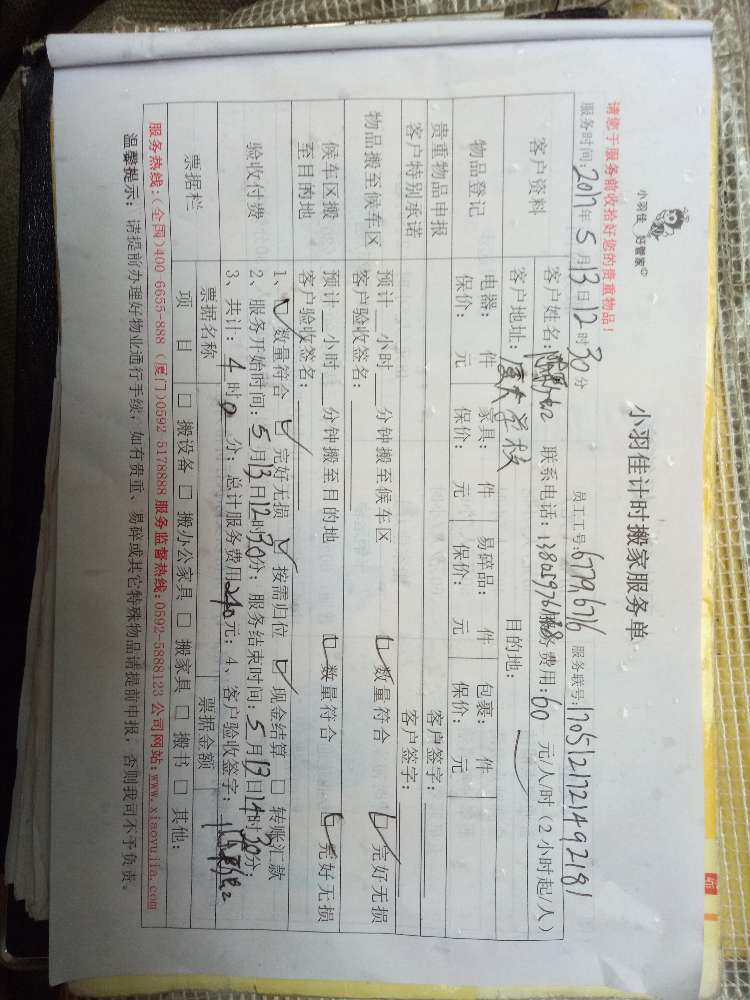 小羽佳 好管家©
小羽佳计时搬家服务单
请您于服务前收拾好您的贵重物品！
员工工号:6779,6716 服务联号:
服务时间:2017年5月13日12时30分
客户资料
客户姓名: 联系电话: 服务费用:60 元/人/时(2小时起/人)
客户地址:厦大学校 目的地:
物品登记
电器: 件 家具: 件 易碎品: 件 包裹: 件
保价: 元 保价: 元 保价: 元 保价: 元
贵重物品申报 客户签字:
客户特别承诺 客户签字:
物品搬至候车区
预计 小时 分钟搬至候车区 数量符合 完好无损
客户验收签名:
候车区搬至目的地
预计 小时 分钟搬至目的地 数量符合 完好无损
客户验收签名:
验收付费
1、 数量符合 完好无损 按需归位 现金结算 □ 转账汇款
2、服务开始时间:5月13日12时30分; 服务结束时间:5月13日14时30分;
3、共计:4时0分; 总计服务费用240元; 4、客户验收签字:
票据栏
票据名称 票据金额
项 目 □ 搬设备 □ 搬办公家具 □ 搬家具 □ 搬书 □ 其他:
服务热线:(全国)400 6655-888 (厦门)0592 5178888 服务监督热线:0592-5888123 公司网站:www.xiaoyujia.com
温馨提示: 请提前办理好物业通行手续,如有贵重、易碎或其它特殊物品请提前申报,否则我司不予负责。